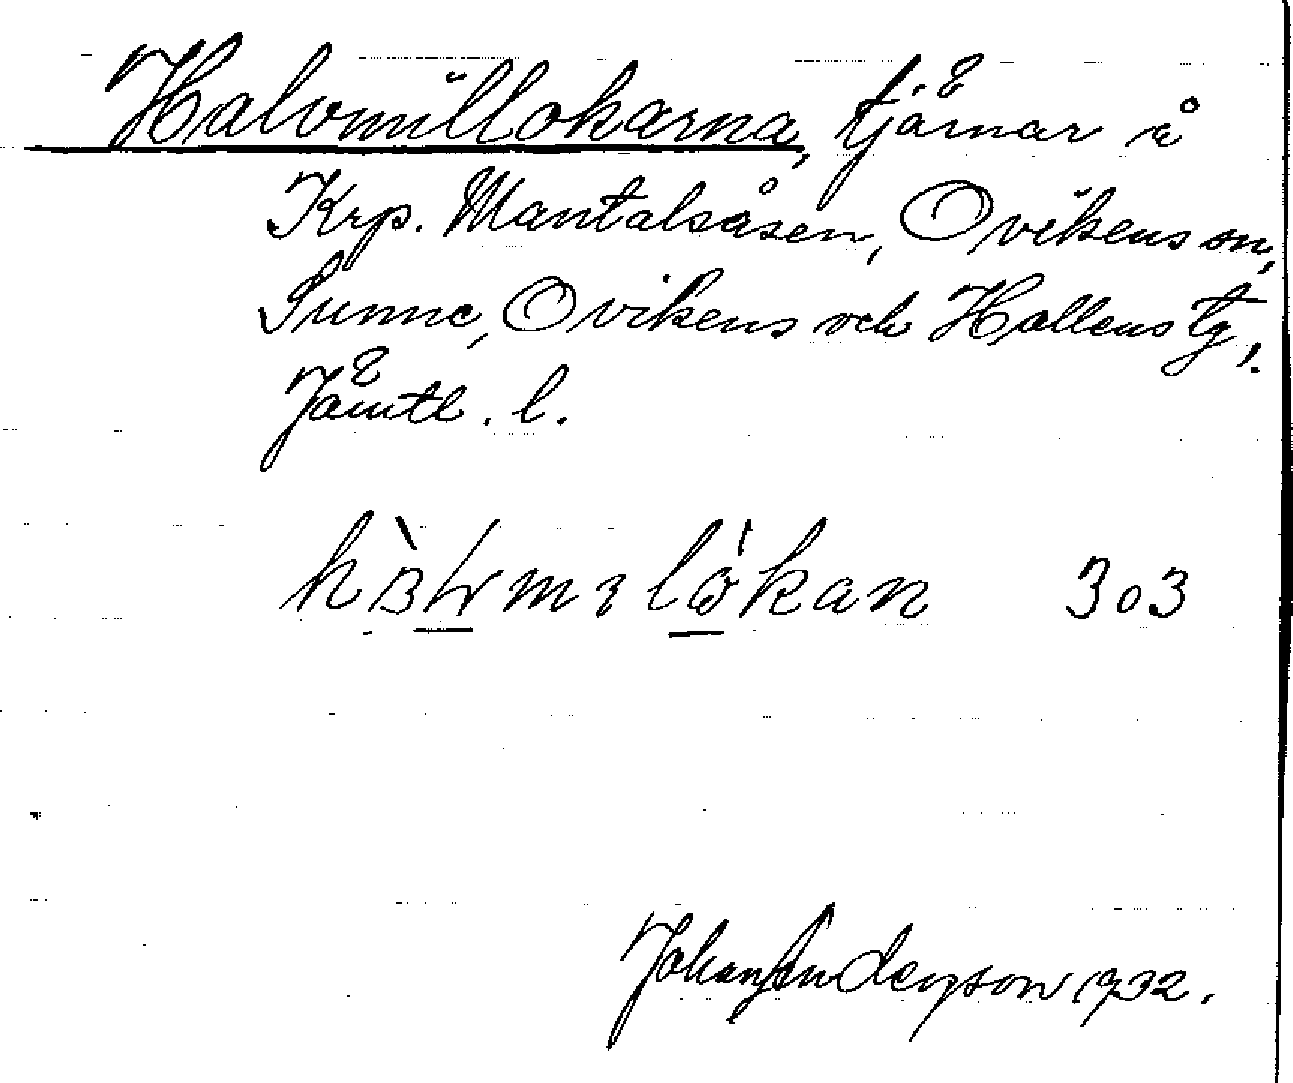 Halvmillokarna, tjärnar å
Krp. Mantalsåsen, Ovikens sn,
Sunne, Ovikens och Hallens tg,
Jämtl. l.
303
Johan Anderson 1932.